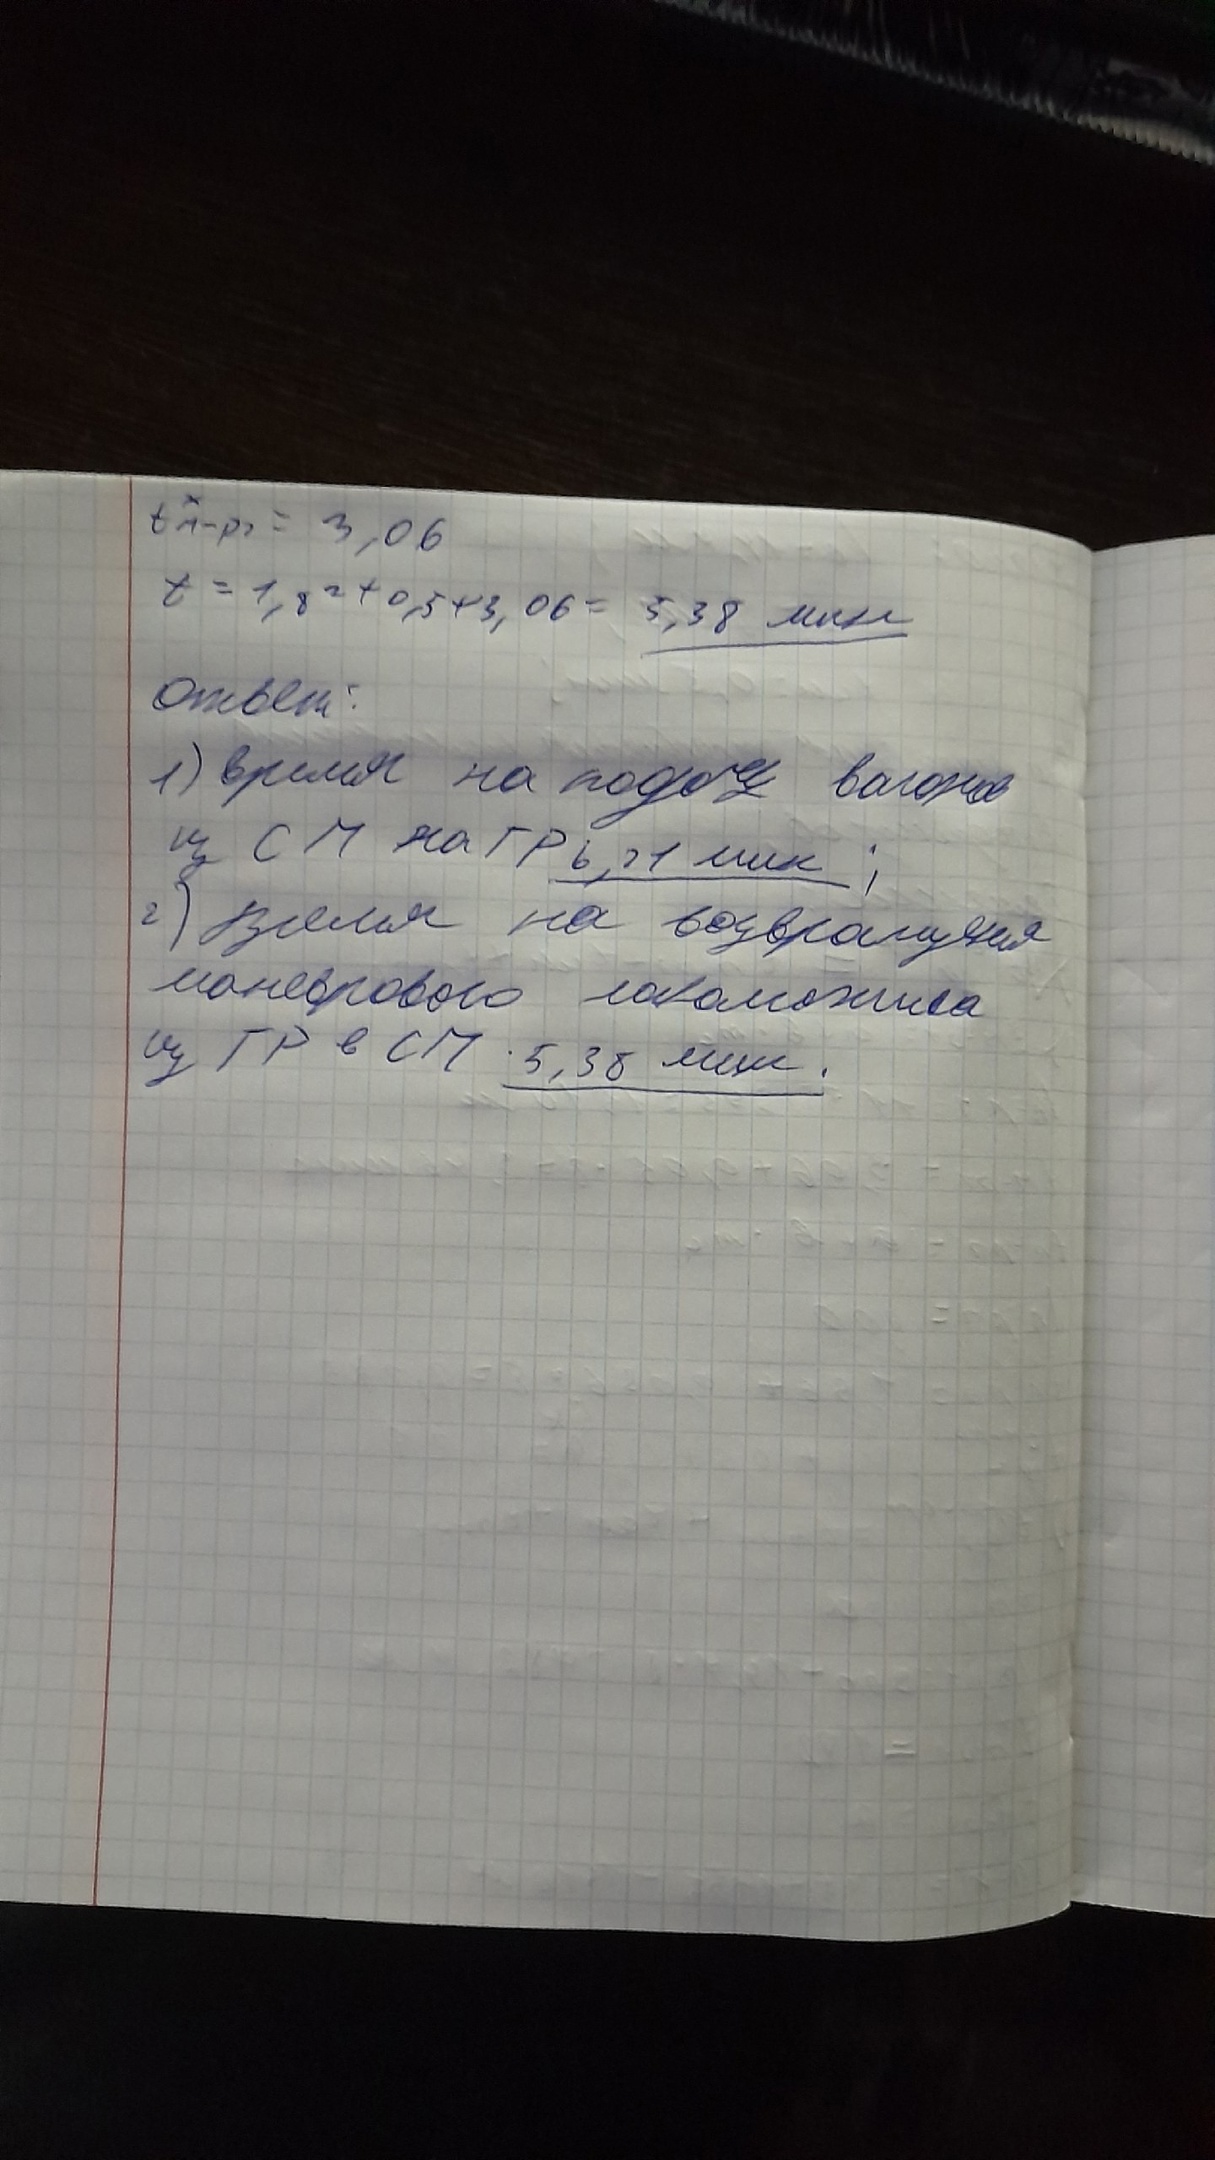 t п-рг = 3,06
t = 1,82 + 0,5 + 3,06 = 5,38 мин
Ответ:
1) время на подачу вагонов
из СМ на ГР 6,21 мин;
2) время на возвращения
маневрового локомотива
из ГР в СМ 5,38 мин.